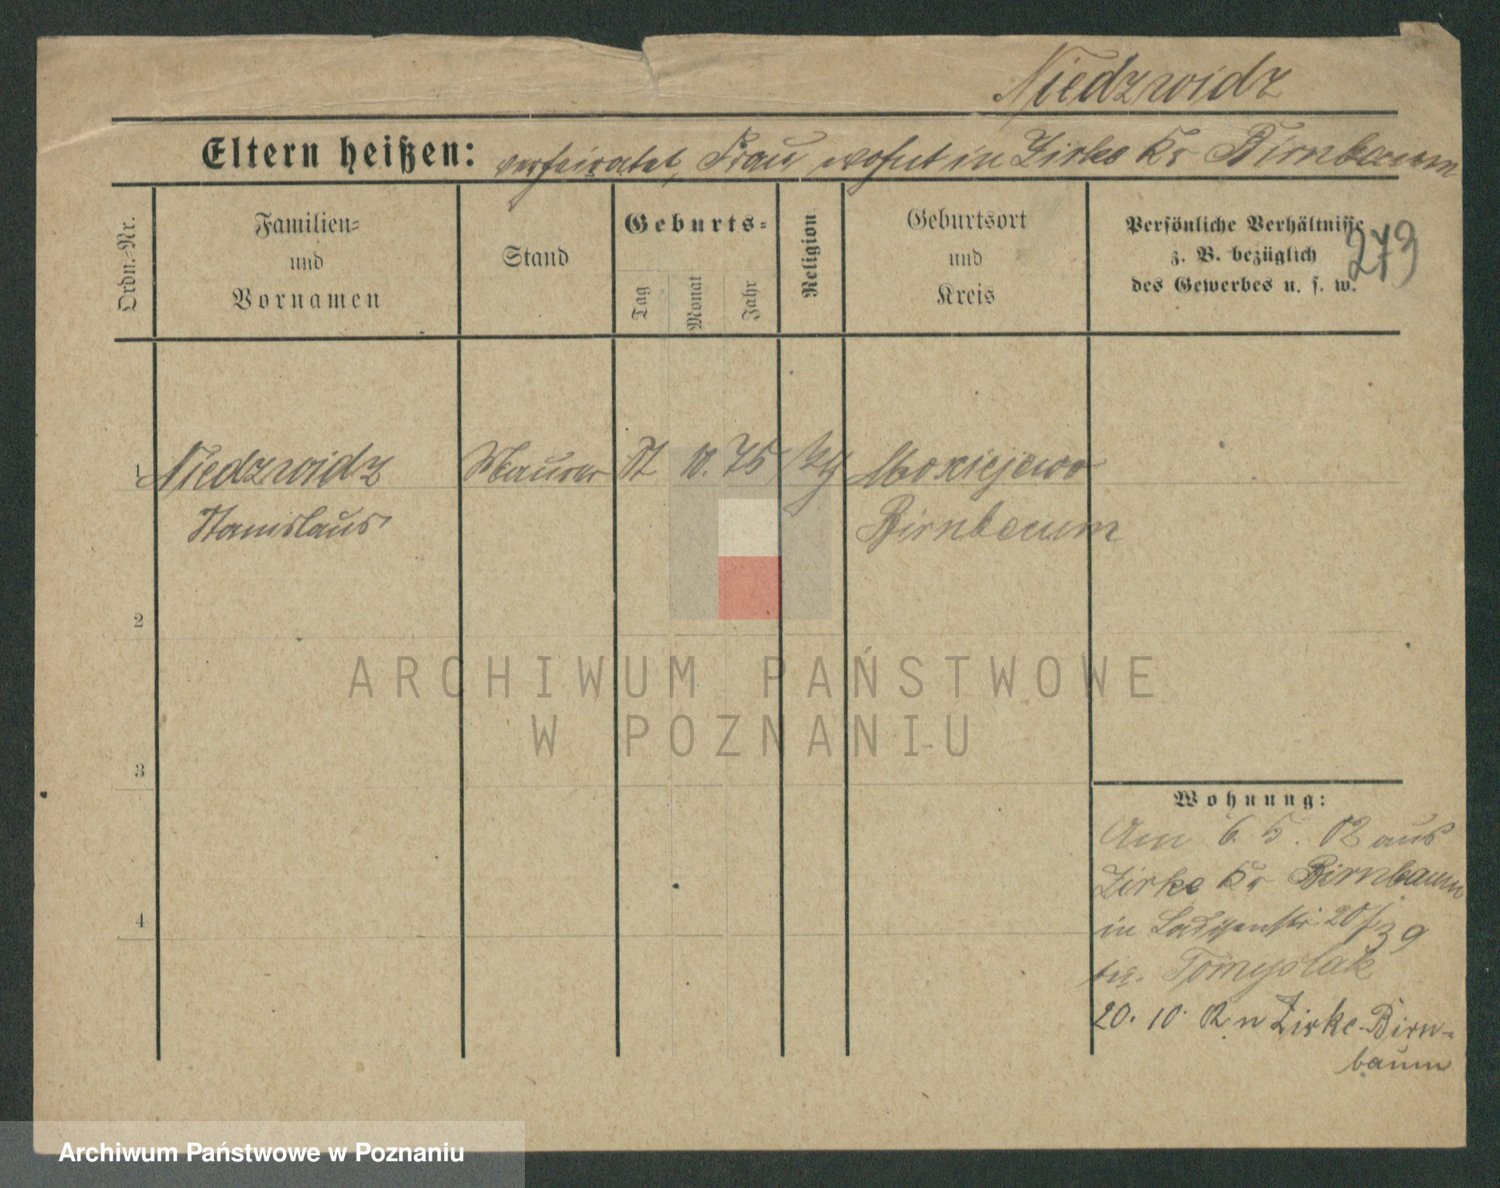 Niedzwidz
Eltern heißen: verheiratet, Frau wohnt in Zirke Kr Birnbaum
Ordn.-Nr.
Familien-
und
Vornamen
Stand
Geburts-
Tag
Monat
Jahr
Religion
Geburtsort
und
Kreis
Persönliche Verhältnisse
z. B. bezüglich
des Gewerbes u. s. w.
273
1 Niedzwidz Maurer 10. 75 kth
Stanislaus Birnbaum
2
3
4
Wohnung:
Am 6. 5. 02 aus
Zirke Kr Birnbaum
in 20
bei Tomyslak
20. 10. 02 n Zirke-Birn-
baum
ARCHIWUM PAŃSTWOWE
W POZNANIU
Archiwum Państwowe w Poznaniu